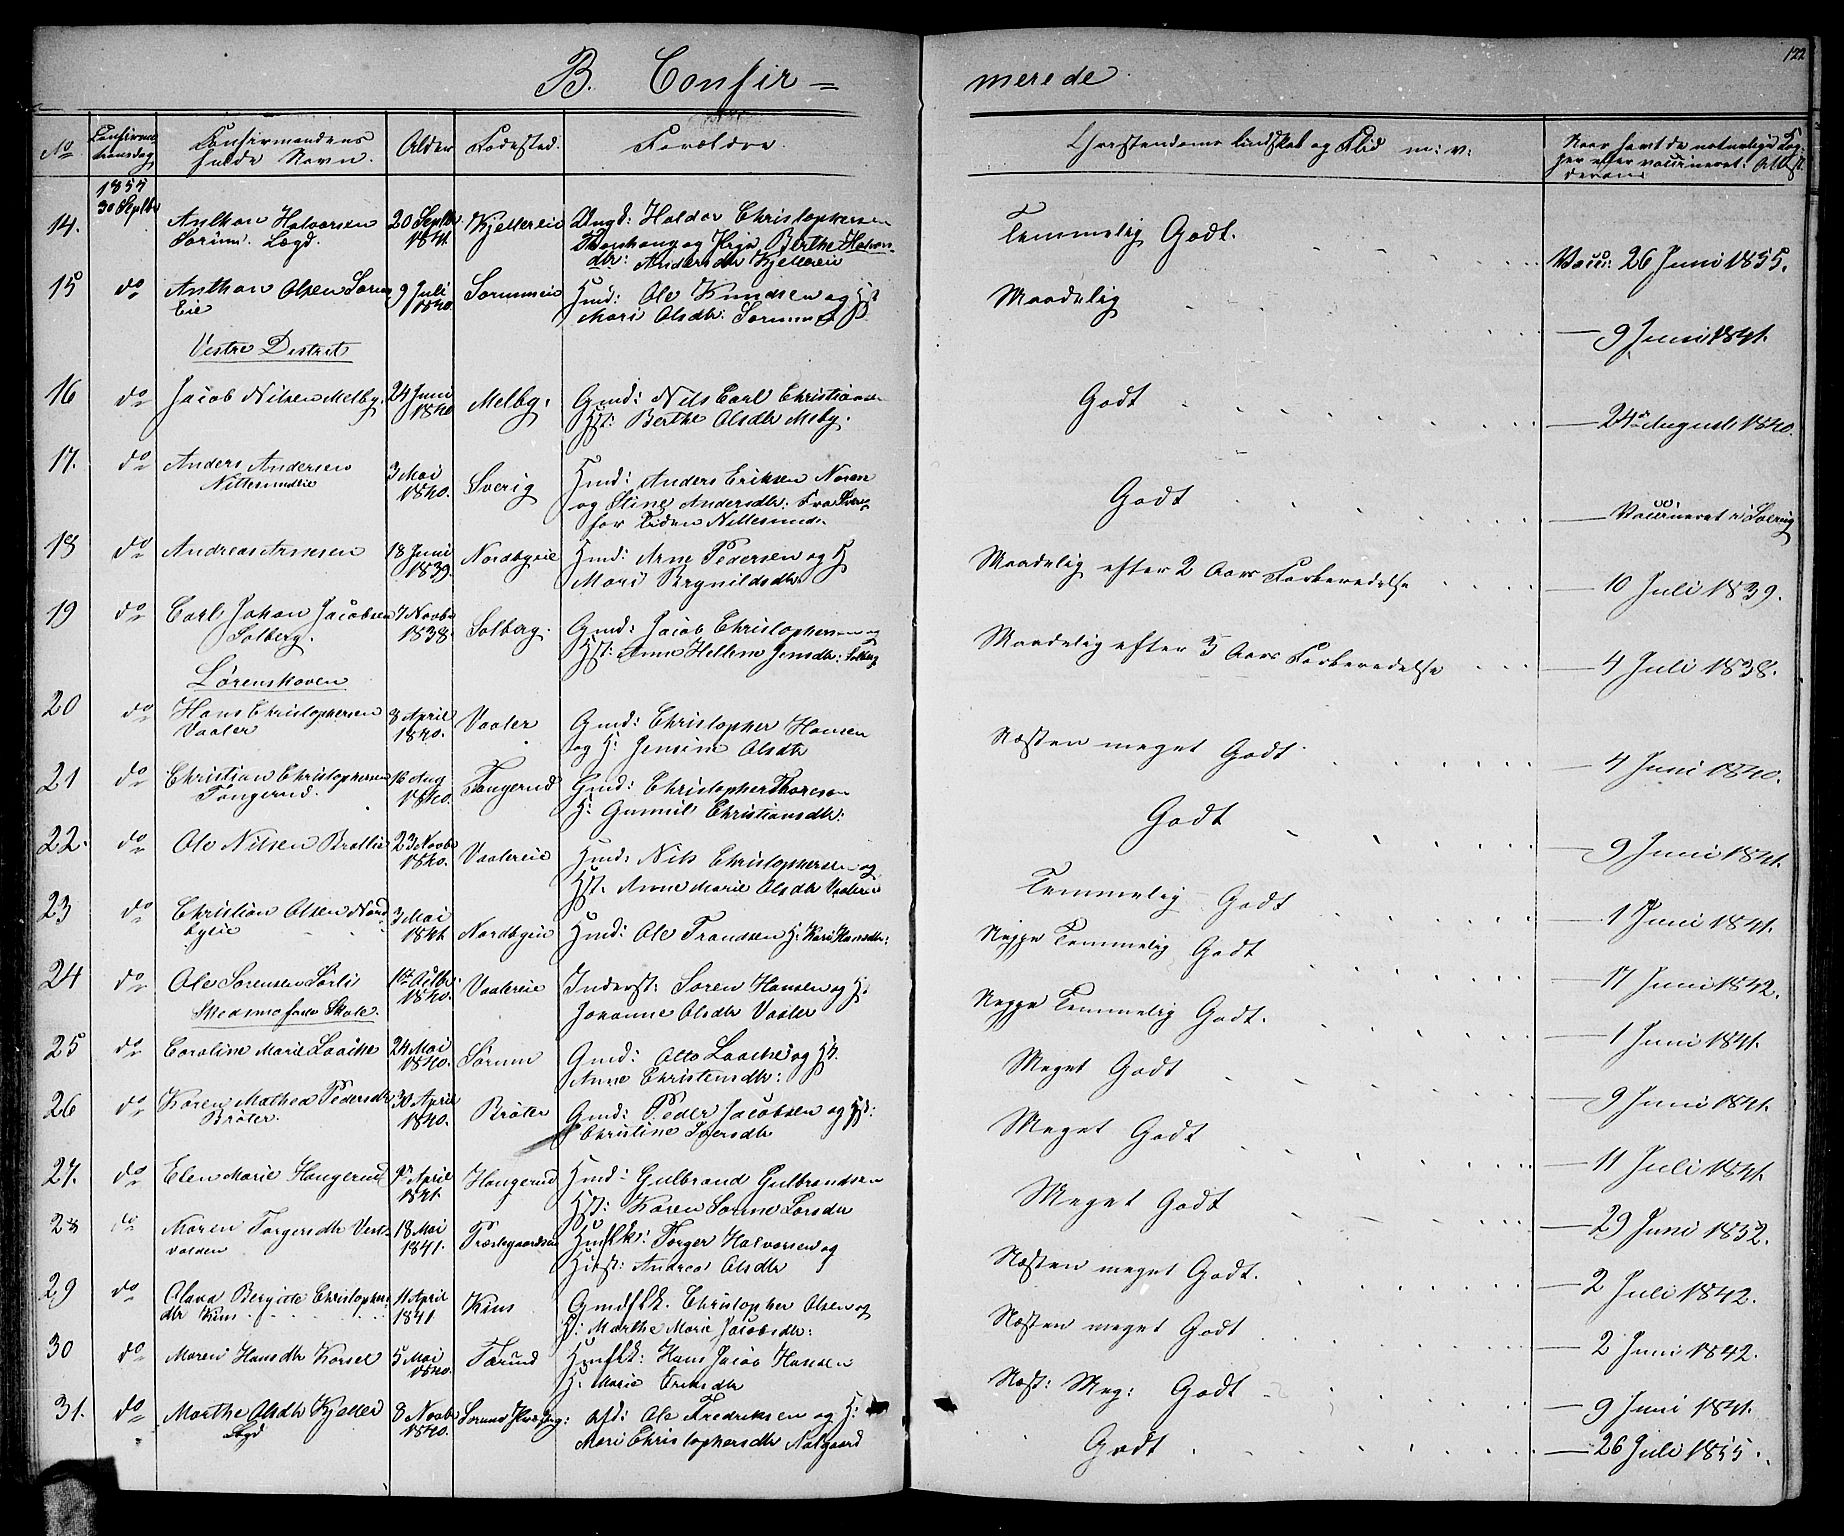 122
B. Confir =
merede
No
Confirma
tionsdag
Confirmandens
fulde Navn.
Alder
Fødested.
Forældre.
Christendoms Kundskab og Flid m: v:
1855
30 Septbr
14. Anthon Halvorsen 20 Septbr Kjellereie Ungk: Haldor Christophersen
Sørum. Lægd. 1841.
Andersdtr Kjellereie
Temmelig Godt.
Vacci: 26 Juni 1855.
15 do Anthon Olsen Sørum 9 Juli Sørumeie Hmd: Ole Knudsen og Hst
Eie 1840. Mari Olsdtr. Sørume
Maadelig
— 9 Juni 1841.
Vestre Destrct
16 do Jacob Nilsen Melby. 24 Juni Melby. Gmd: Nils Carl Christians
1840 Hst: Berthe Olsdtr Meby.
Godt
— 24de August 1840.
17. do Anders Andersen 3 Mai Sverig Hmd: Anders Eriksen Noren
Nittesundeie 1840. og Stine Andersdtr. Fra Sverig
for tiden Nittesunde
Godt
— Vaccineret i Sverig
18 do Andreas Arnesen 18 Juni Nordbyeie Hmd: Arne Pedersen og H
1839. Mari Bergnildsdtr
Maadelig efter 2 Aars Forberedelse
— 10 Juli 1839.
19 do Carl Johan Jacobsen 7 Novbr Solberg. Gmd: Jacob Christophersen og
Solberg. 1838. Hst: Anne Hellene Jensdtr: Solberg
Maadelig efter 3 Aars Forberedelse
— 4 Juli 1838.
Lørenskoven
20 do Hans Christophersen 8 April Vaaler Gmd: Christopher Hansen
Vaaler 1840. og H: Jensine Olsdtr
Næsten meget Godt.
— 4 Juni 1840.
21 do Christian Christophersen 16 Aug Fangerud Gmd: Christopher Thoresen
Fangerud. 1840. H: Gunnil Christiansdtr:
Godt
— 9 Juni 1841.
22. do Ole Nilsen Bratlie 23 Novbr Vaalereie Hmd: Nils Christophersen og
1840. Hst. Anne Marie Olsdtr Vaalereie
Temmelig Godt
— 1 Juni 1841.
23 do Christian Olsen Nord 3 Mai Nordbyeie Hmd: Ole Trondsen H: Kari Hansdtr:
byeie 1841
Neppe Temmelig Godt
— 17 Juni 1842.
24 do Ole Sørensen Sørli 1st Octbr. Vaalereie Inderst: Søren Hansen og H:
1840. Johanne Olsdtr Vaaler
Neppe Temmelig Godt.
— 1 Juni 1841.
Skedsmo faste Skole.
25 do Caroline Marie Laache 24 Mai Sørum Gmd: Otto Laache og Hst.
1840. Anne Christensdtr:
Meget Godt
— 9 Juni 1841.
26 do Karen Mathea Pedersdtr 30 April Brøter Gmd: Peder Jacobsen og Hst:
Brøter. 1840. Christine Iversdtr
Meget Godt
— 11 Juli 1841.
27. do Elen Marie Haugerud April Haugerud Hmd: Gulbrand Gulbrandsen
1841. Hst: Karen Larsdtr
Meget Godt
— 29 Juni 1852.
28 do Maren Torgersdtr Vest= 18 Mai Præstegaardseie Husflk: Torger Halvorsen og
volden 1841. Hst: Andrea Olsdtr
Næsten meget Godt.
— 2 Juli 1842.
29 do Olava Bergitte Christophers 11 April Kius Gmdflk. Christopher Olsen og
dtr Kius 1841. H: Marthe Marie Jacobsdtr:
Næsten meget Godt
— 2 Juni 1842.
30 do Maren Hansdtr Korsel 5 Mai Farund Husflk: Hans Jacob Hansen
1840. H: Marie Eriksdtr
Næst: Meg: Godt
— 9 Juni 1841.
31. do Marthe Olsdtr Kjeller 8 Novbr Afd: Ole Fredriksen og H:
Lægd 1840. Mari Christophersdtr Aalgaard
Godt
— 26 Juli 1855.